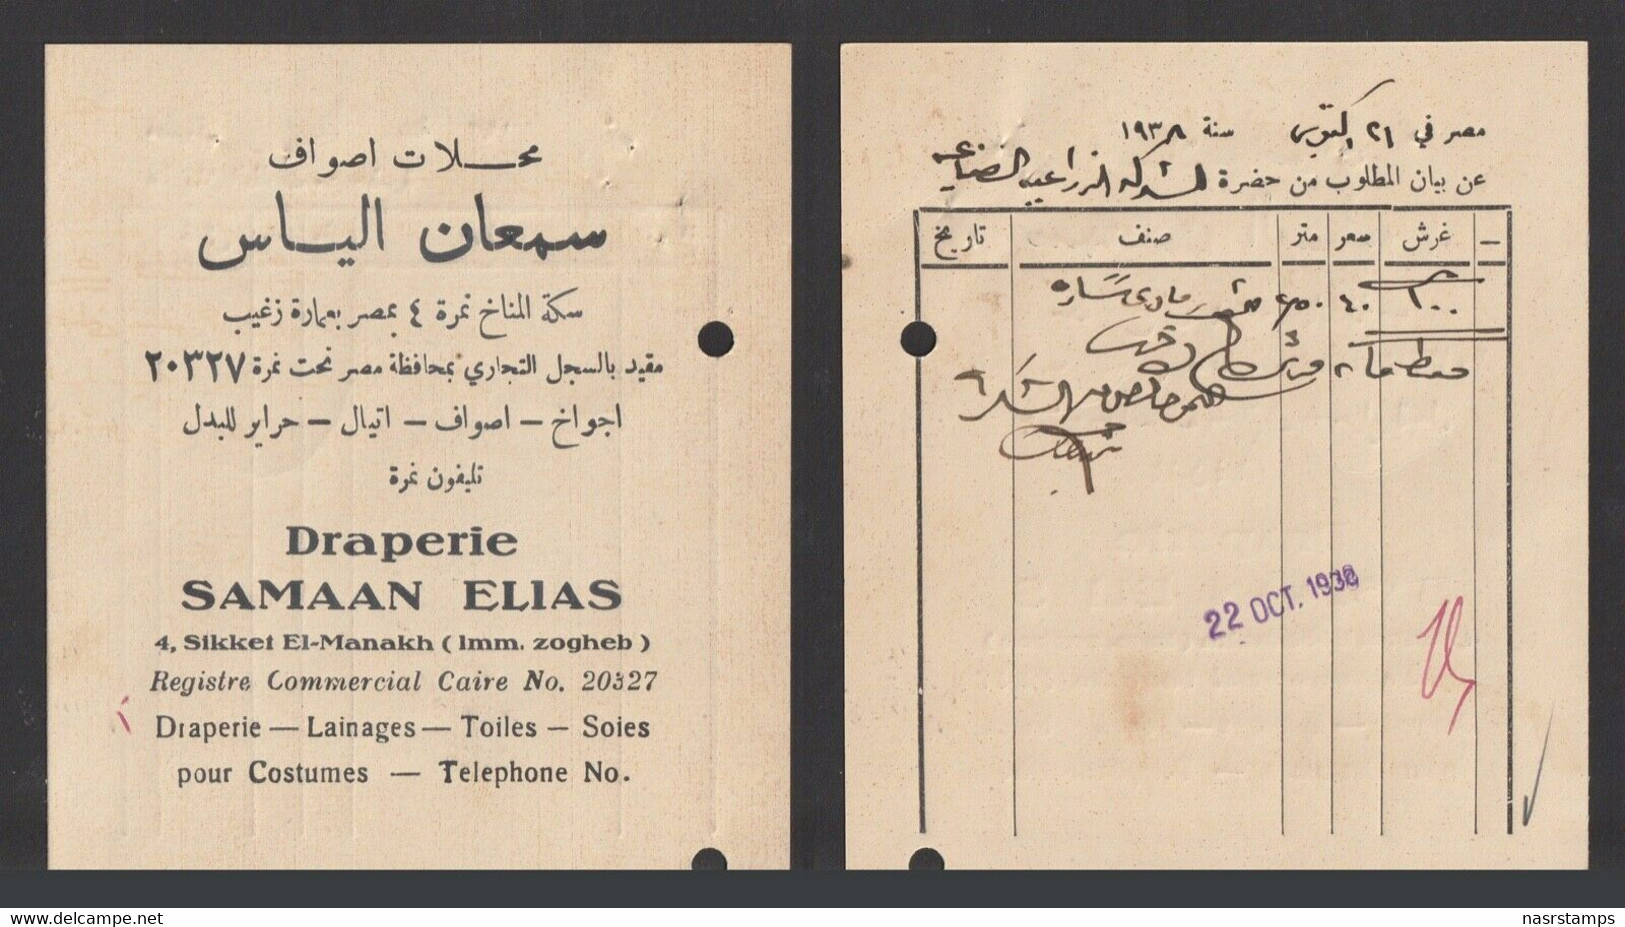 محلات اصواف
سمعان الياس
سكة المناخ نمرة ٤ بمصر بعمارة زغيب
مقيد بالسجل التجاري بمحافظة مصر تحت نمرة ٢٠٣٢٧
اجواخ — اصواف — اتيال — حراير للبدل
تليفون نمرة
Draperie
SAMAAN ELIAS
4, Sikket El-Manakh ( Imm. zogheb )
Registre Commercial Caire No. 20327
Draperie — Lainages — Toiles — Soies
pour Costumes — Telephone No.
مصر في ٢١ اكتوبر سنة ١٩٣٨
عن بيان المطلوب من حضرة الشركه الزراعيه الصناعيه
— غرش سعر متر صنف تاريخ
١٠٠ ٤٠ ٢/٥٠
22 OCT. 1938
delcampe.net
nasrstamps